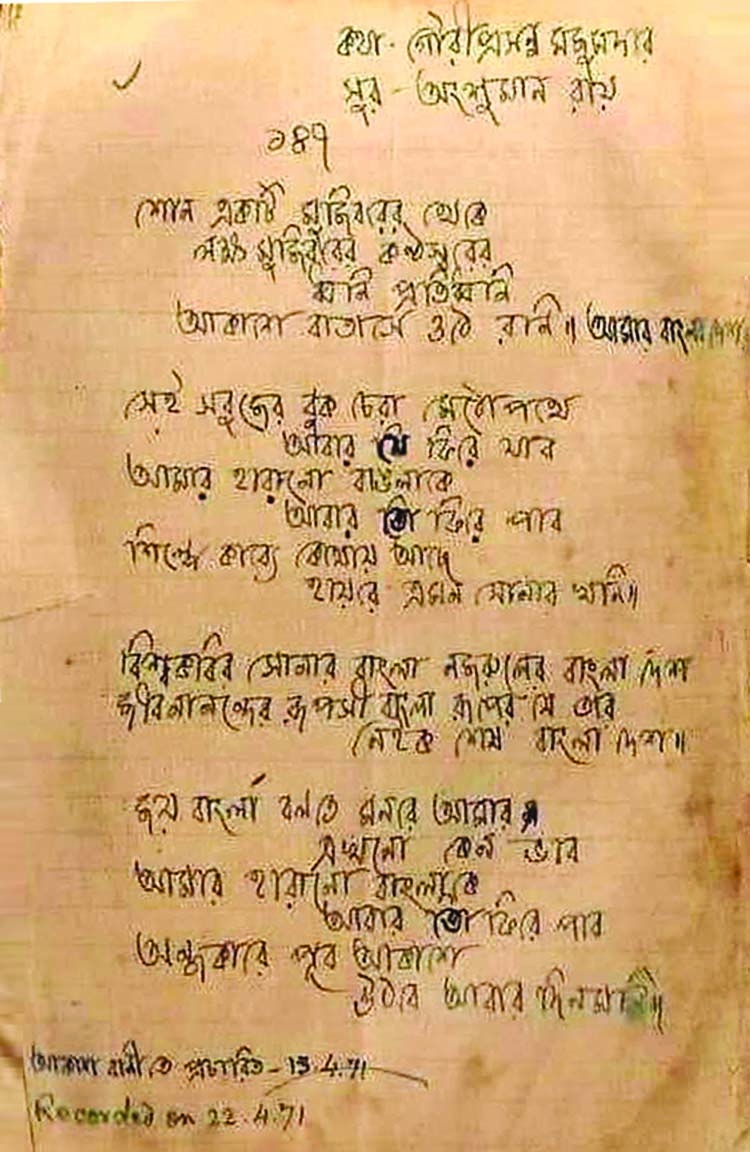 কথা - গৌরীপ্রসন্ন মজুমদার
সুর - অংশুমান রায়
১৪৭
শোন একটি মুজিবরের থেকে
লক্ষ মুজিবরের কণ্ঠস্বরের
ধ্বনি প্রতিধ্বনি
আকাশে বাতাসে ওঠে রনি॥ আমার বাংলা দেশ
সেই সবুজের বুক চেরা মেঠোপথে
আবার যে ফিরে যাব
আমার হারানো বাঙলাকে
আবার তো ফিরে পাব
শিল্পে কাব্যে কোথায় আছে
হায়রে এমন সোনার খনি॥
বিশ্বকবির সোনার বাংলা নজরুলের বাংলা দেশ
জীবনানন্দের রূপসী বাংলা রূপের যে তার
নেইক শেষ বাংলা দেশ॥
জয় বাংলা বলতে মনরে আমার
এখনো কেন ভাব
আমার হারানো বাংলাকে
আবার তো ফিরে পাব
অন্ধকারে পূব আকাশে
উঠবে আবার দিনমনি॥
আকাশ বানীতে প্রচারিত - 15.4.71
Recorded on 22.4.71